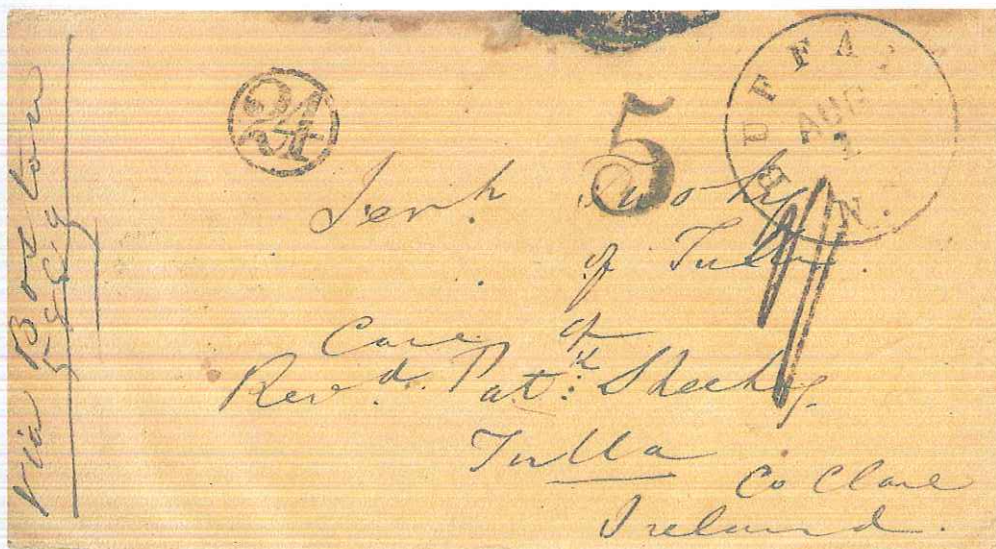 via Boston
24
5
BUFFA
AUG
1
N.
Twohy
of Tulla.
Care of
Revd. Patk: Sheehy
Tulla
Co Clare
Ireland.